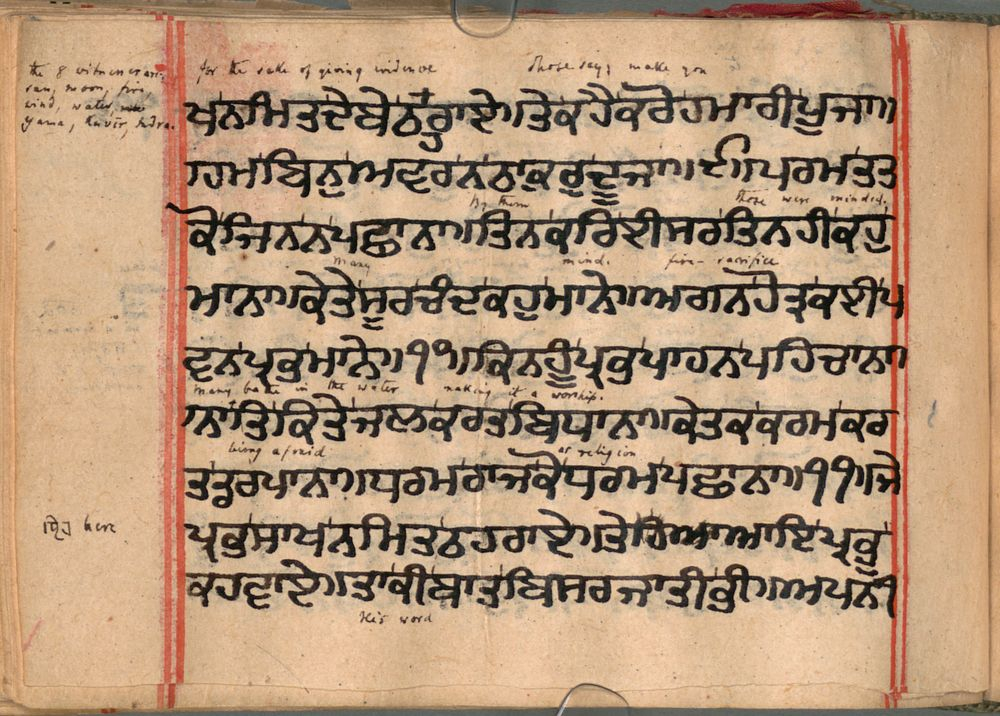 the 8 witnesses are
sun, moon, fire,
wind, water,
yama, Kuvir, Indra.
for the sake of giving evidence
those say, make you
ਖਨਮਿਤਦੇਬੇਠਰਾਏ॥ਤੇਕਹੈਕਰੋਹਮਾਰੀਪੂਜਾ॥
ਹਮਬਿਨੁਅਵਰਨਠਾਕੁਰੁਦੂਜਾ॥੯॥ਪਰਮਤਤ
By them
those were minded.
ਕੌਜਿਨਨਪਛਾਨਾ॥ਤਿਨਕਰਿਈਸਰਤਿਨਹੀਕਹੁ
many
mind.
fire-sacrifice
ਮਾਨਾ॥ਕੇਤੇਸੂਰਚੰਦਕਹੁਮਾਨੇ॥ਅਗਨਹੋਤ੍ਰਕਈਪ
ਵਨਪ੍ਰਭੁਮਾਨੇ॥੧੧॥ਕਿਨਹੂੰਪ੍ਰਭੁਪਾਹਨਪਹਿਚਾਨਾ
many bathe in the water
making it a worship.
ਨਾਤਿਕਿਤੇਜਲਕਰਤਬਿਧਾਨਾ॥ਕੇਤਕਕਰਮਕਰ
being afraid
as religion
ਤਡਰਪਾਨਾ॥ਧਰਮਰਾਜਕੌਧਰਮਪਛਾਨਾ॥੧੧॥ਜੇ
here
ਪ੍ਰਭੁਸਾਖਨਮਿਤਠਹਰਾਏ॥ਤੇਹਿਆਆਇਪ੍ਰਭੁ
ਕਹਵਾਏ॥ਤਾਕੀਬਾਤਬਿਸਰਜਾਤੀਭੀ॥ਅਪਨੀ
His word